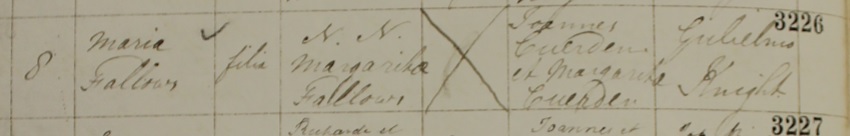 3226
8
Maria
Fallows
filia
N. N.
Margarita
Falllows
Joannes
Cuerden
et Margarita
Cuerden
Gulielmo
Knight
3227
Richardo et
Joannes et